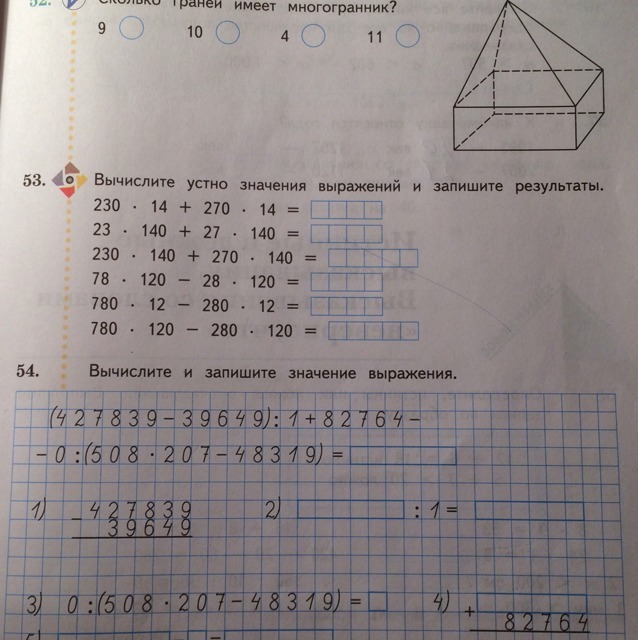 52. Сколько граней имеет многогранник?
9 10 4 11
53. Вычислите устно значения выражений и запишите результаты.
230 · 14 + 270 · 14 =
23 · 140 + 27 · 140 =
230 · 140 + 270 · 140 =
78 · 120 − 28 · 120 =
780 · 12 − 280 · 12 =
780 · 120 − 280 · 120 =
54. Вычислите и запишите значение выражения.
(427839−39649):1+82764−
−0:(508·207−48319)=
1) −427839 2) :1=
39649
3) 0:(508·207−48319)= 4) +
82764